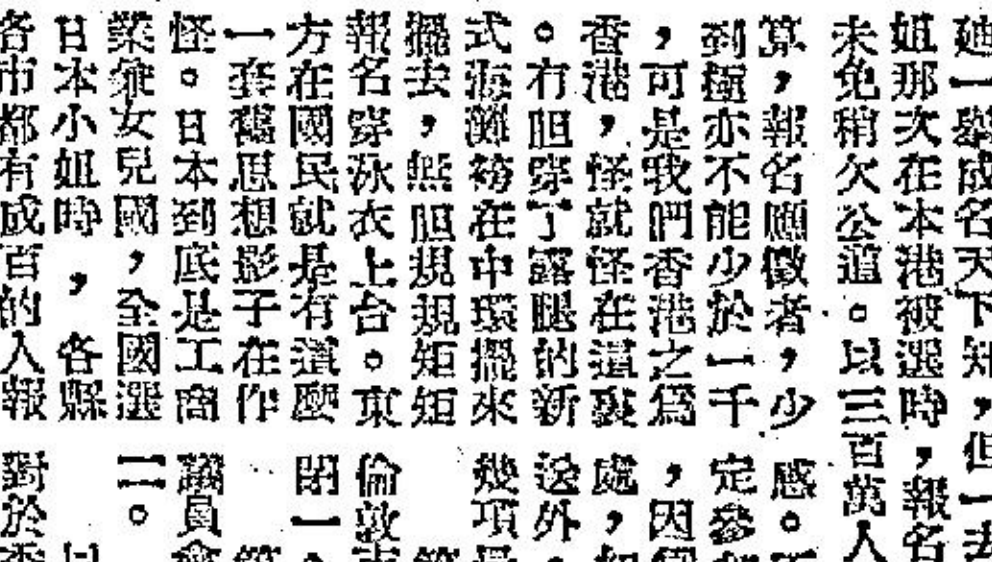 廸一舉成名天下知，但一去
姐那次在本港被選時，報名
未免稍欠公道。以三百萬人
算，報名應徵者，少
到極亦不能少於一千
，可是我們香港之爲
香港，怪就怪在這裏
。有胆穿了露腿的新
式海灘袴在中環擺來
擺去，無胆規規矩矩
報名穿泳衣上台。東
方在國民就是有這麼
一套舊思想影子在作
怪。日本到底是工商
業兼女兒國，全國選
日本小姐時，各縣
各市都有成百的人報
感。
定參
，因
處，
送外
幾項
倫敦
閉一
議員會
二。
對於